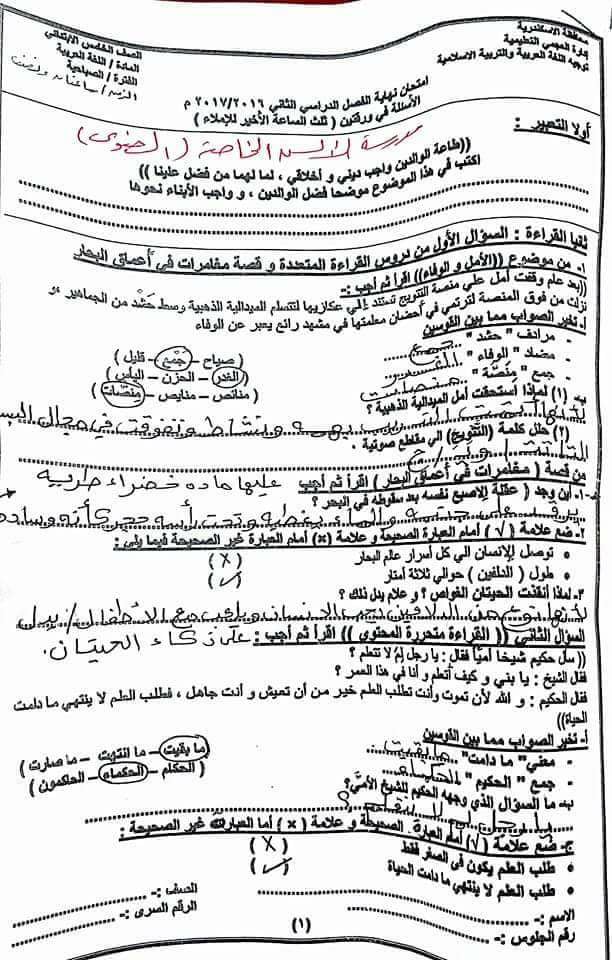 محافظة الاسكندرية
إدارة العجمي التعليمية
توجيه اللغة العربية والتربية الاسلامية
الصف الخامس الابتدائي
المادة / اللغة العربية
الفترة / الصباحية
الزمن / ساعتان ونصف
امتحان نهاية الفصل الدراسي الثاني ٢٠١٧/٢٠١٦ م
الأسئلة في ورقتين ( ثلث الساعة الأخير للإملاء )
أولا التعبير :
مدرسة الالسن الخاصة
((طاعة الوالدين واجب ديني و أخلاقي ، لما لهما من فضل علينا ))
اكتب في هذا الموضوع موضحا فضل الوالدين ، و واجب الأبناء نحوها
ثانيا القراءة : السؤال الأول من دروس القراءة المتعددة و قصة مغامرات في أعماق البحار
١- من موضوع ((الأمل و الوفاء)) اقرأ ثم أجب :-
((بعد عام وقفت أمل علي منصة التتويج تستند إلي عكازيها لتتسلم الميدالية الذهبية وسط حَشْد من الجماهير ، و
نزلت من فوق المنصة لترتمي في أحضان معلمتها في مشهد رائع يعبر عن الوفاء
أ- تخير الصواب مما بين القوسين
- مرادف " حشد " جمع ( صياح – جَمْع – قليل )
- مضاد " الوفاء " الغدر ( الغدر – الحزن – اليأس )
- جمع " مَنَصَّة " منصات ( منائص – منايص – منصَّات )
ب- (١) لماذا استحقت أمل الميدالية الذهبية ؟
(٢) حلل كلمة (التتويج) الي مقاطع صوتية .
من قصة ( مغامرات في أعماق البحار ) اقرأ ثم أجب
عليها ماده خضراء طرية
١- أين وجد ( عقلة الإصبع نفسه بعد سقوطه في البحر ؟
٢- ضع علامة (√) أمام العبارة الصحيحة و علامة (×) أمام العبارة غير الصحيحة فيما يلي :
- توصل الإنسان الي كل أسرار عالم البحار (X)
- طول ( الدلفين ) حوالي ثلاثة أمتار (✓)
٣- لماذا أنقذت الحيتان الغواص ؟ و علام يدل ذلك ؟
السؤال الثاني (( القراءة متحررة المحتوي )) اقرأ ثم أجب :
على ذكاء الحيتان .
(( سأل حكيم شيخا أمياً فقال : يا رجل لِمَ لا تتعلم ؟
فقال الشيخ : يا بني و كيف أتعلم و أنا في هذا السن ؟
فقال الحكيم : و الله لأن تموت وأنت تطلب العلم خير من أن تعيش و أنت جاهل ، فطلب العلم لا ينتهي ما دامت
الحياة))
أ- تخير الصواب مما بين القوسين
- معني " ما دامت " ما بقيت ( ما بقيت – ما انتهت – ما صارت )
- جمع " الحكيم " الحكماء ( الحكام – الحكماء – الحاكمون )
ب- ما السؤال الذي وجهه الحكيم للشيخ الأميَّ؟
يا رجل لم لا تتعلم ؟
ج- ضع علامة (√) أمام العبارة الصحيحة و علامة ( × ) أما العبارة غير الصحيحة :
• طلب العلم يكون في الصغر فقط (X)
• طلب العلم لا ينتهي ما دامت الحياة (✓)
الاسم :-
الصف :-
رقم الجلوس :-
الرقم السرى :-
(١)